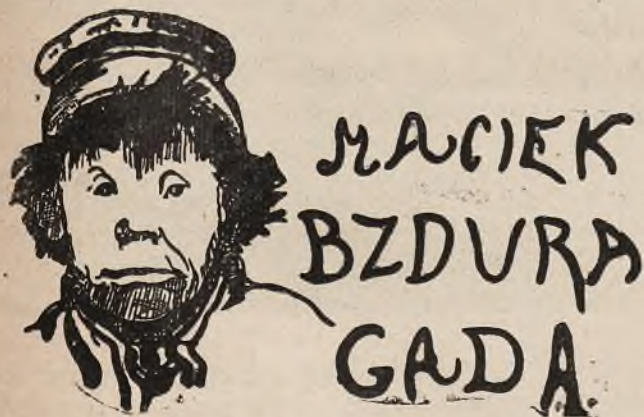 MACIEK
BZDURA
GADA.